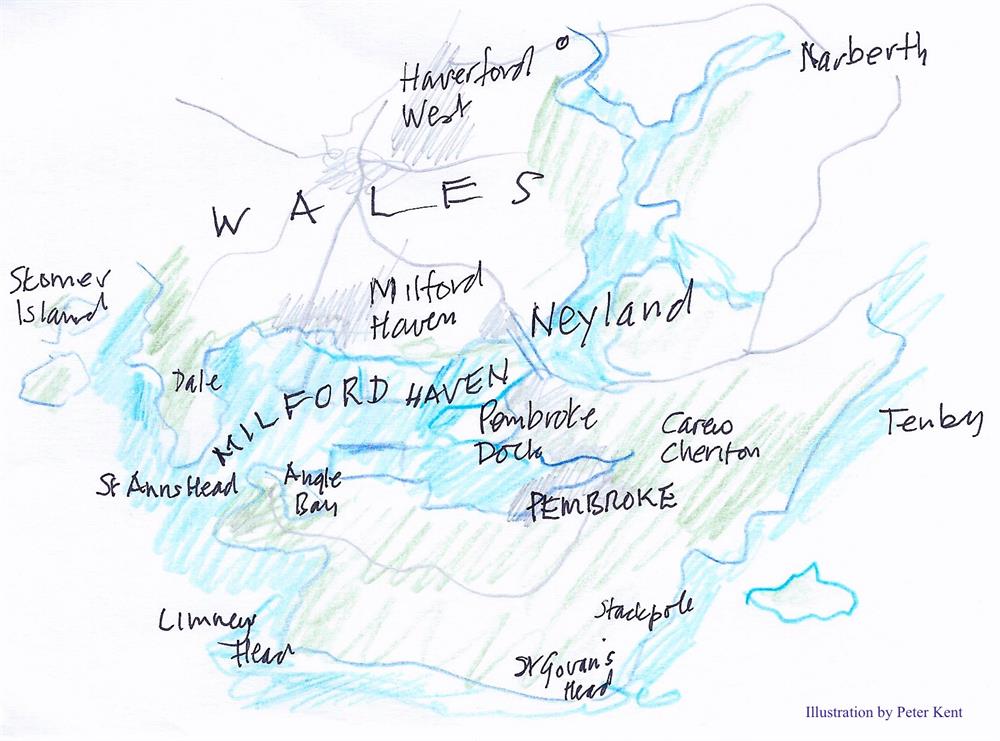 Haverford
West
Narberth
WALES
Skomer
Island
Milford
Haven
Neyland
Dale
MILFORD HAVEN
Pembroke
Dock
Carew
Cheriton
Tenby
St Anns Head
Angle
Bay
PEMBROKE
Limney
Head
Stackpole
St Govan's
Head
Illustration by Peter Kent